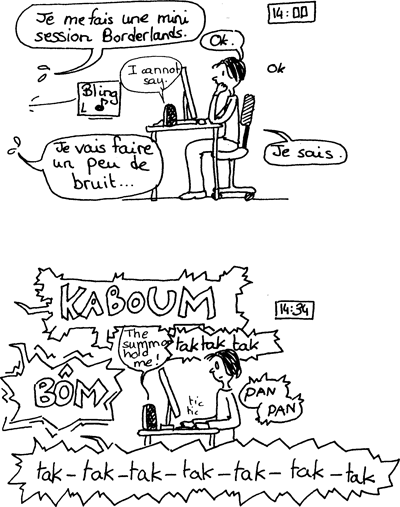 Je me fais une mini
session Borderlands.
14:00
Ok.
Bling
I cannot
say.
Ok
Je vais faire
un peu de
bruit...
Je sais.
KABOUM
14:34
The
summo
hold
me!
tak tak tak
BÔM
tic
tic
PAN
PAN
tak - tak - tak - tak - tak - tak - tak